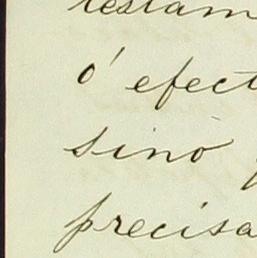 testam
ó efect
sino
precisa